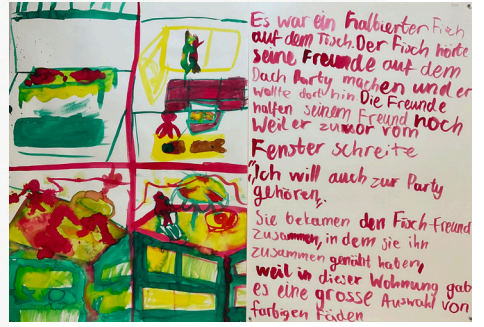 Es war ein halbierter Fisch
auf dem Tisch. Der Fisch hörte
seine Freunde auf dem
Dach Party machen und er
wollte dort hin Die Freunde
halfen seinem Freund noch
Weil er zuvor vom
Fenster schreite
"Ich will auch zur Party
gehören".
Sie bekamen den Fisch-Freund
zusammen, in dem sie ihn
zusammen genäht haben,
weil in dieser Wohnung gab
es eine grosse Auswahl von
farbigen Fäden